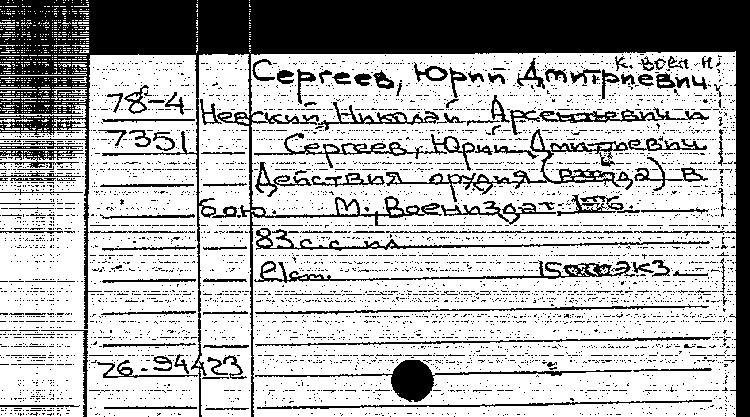 К. Воен. Н.
Сергеев, Юрий Дмитриевич
78-4 Невский, Николай Арсентьевич и
7351 Сергеев, Юрий Дмитриевич
Действия орудия (взвода) в
бою. М., Воениздат, 1976.
83 с. с ил.
15000 экз.
76-94423